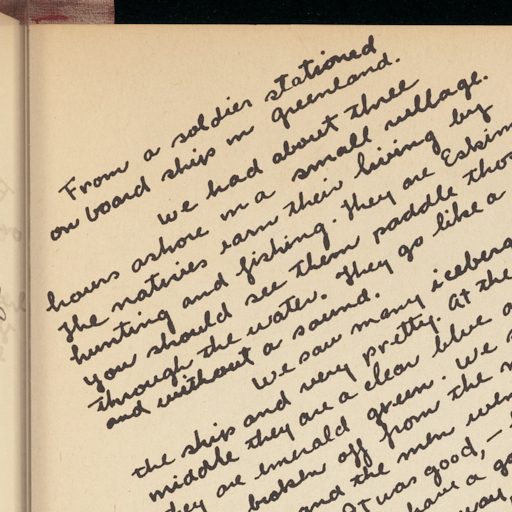 From a soldier stationed
on board ship in greenland.
We had about three
hours ashore in a small village.
The natives earn their living by
hunting and fishing. They are
You should see them paddle
through the water. They go like a
and without a sound.
We saw many
the ship and very pretty. At the
middle they are a clear blue
they are emerald green. We
broken off from the
and the men
It was good, –
have a